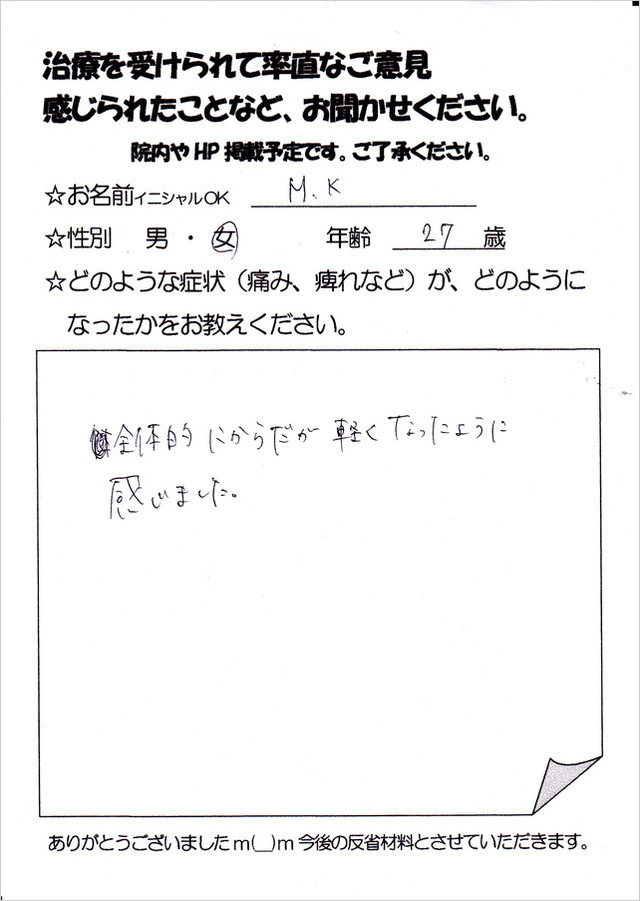 治療を受けられて率直なご意見
感じられたことなど、お聞かせください。
院内やHP掲載予定です。ご了承ください。
☆お名前イニシャルOK M.K
☆性別 男・女 年齢 27 歳
☆どのような症状（痛み、痺れなど）が、どのように
なったかをお教えください。
全体的にからだが軽くなったように
感じました。
ありがとうございましたm(__)m今後の反省材料とさせていただきます。